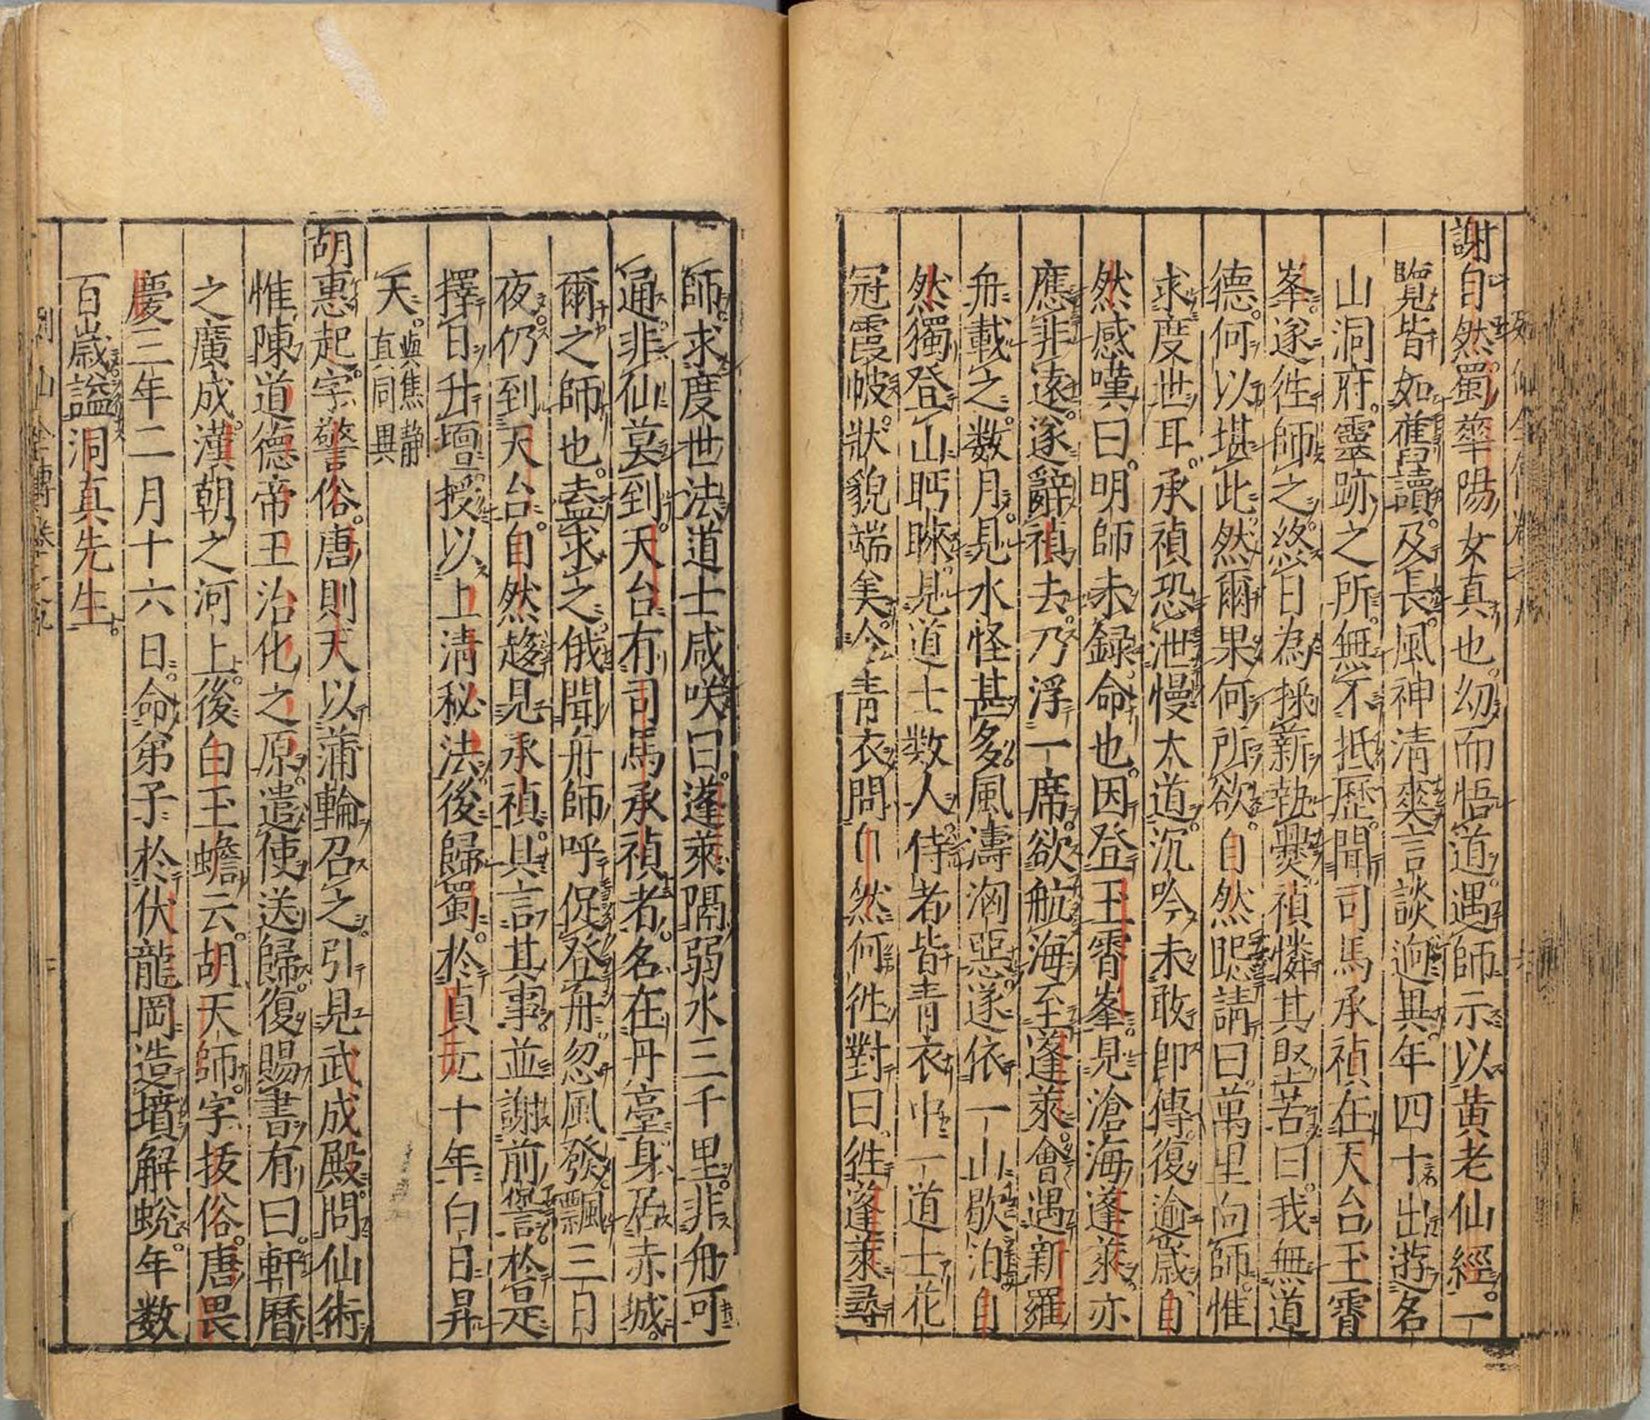 謝自然蜀華陽女真也幼而悟道遇師示以黄老仙經一
覽皆如舊讀及長風神清爽言談迥異年四十出遊名
山洞府靈跡之所無不抵歷聞司馬承禎在天台玉霄
峯遂徃師之終日為採薪執爨禎憐其堅苦曰我無道
德何以堪此然爾果何所欲自然跽請曰萬里向師惟
求度世耳承禎恐泄慢大道沉吟未敢即傳復逾歲自
然感嘆曰明師未録命也因登玉霄峯見滄海蓬萊亦
應非遠遂辭禎去乃浮一席欲航海至蓬萊會遇新羅
舟載之数月見水怪甚多風濤洶惡遂依一山歇泊自
然獨登山眄睞見道士数人侍者皆青衣中一道士花
冠霞帔狀貌端美令青衣問自然何徃對曰徃蓬萊尋
師求度世法道士咸咲曰蓬萊隔弱水三千里非舟可
通非仙莫到天台有司馬承禎者名在丹臺身居赤城
爾之師也盍求之俄聞舟師呼促登舟忽風發飄三日
夜仍到天台自然趍見承禎具言其事並謝前愆於是
擇日升壇授以上清秘法後歸蜀於貞元十年白日昇
天與焦静真同異
胡惠起字警俗唐則天以蒲輪召之引見武成殿問仙術
惟陳道德帝王治化之原遣使送歸復賜書有曰軒曆
之廣成漢朝之河上後白玉蟾云胡天師字拔俗唐畏
慶三年二月十六日命弟子於伏龍岡造墳解蛻年数
百歲謚洞真先生